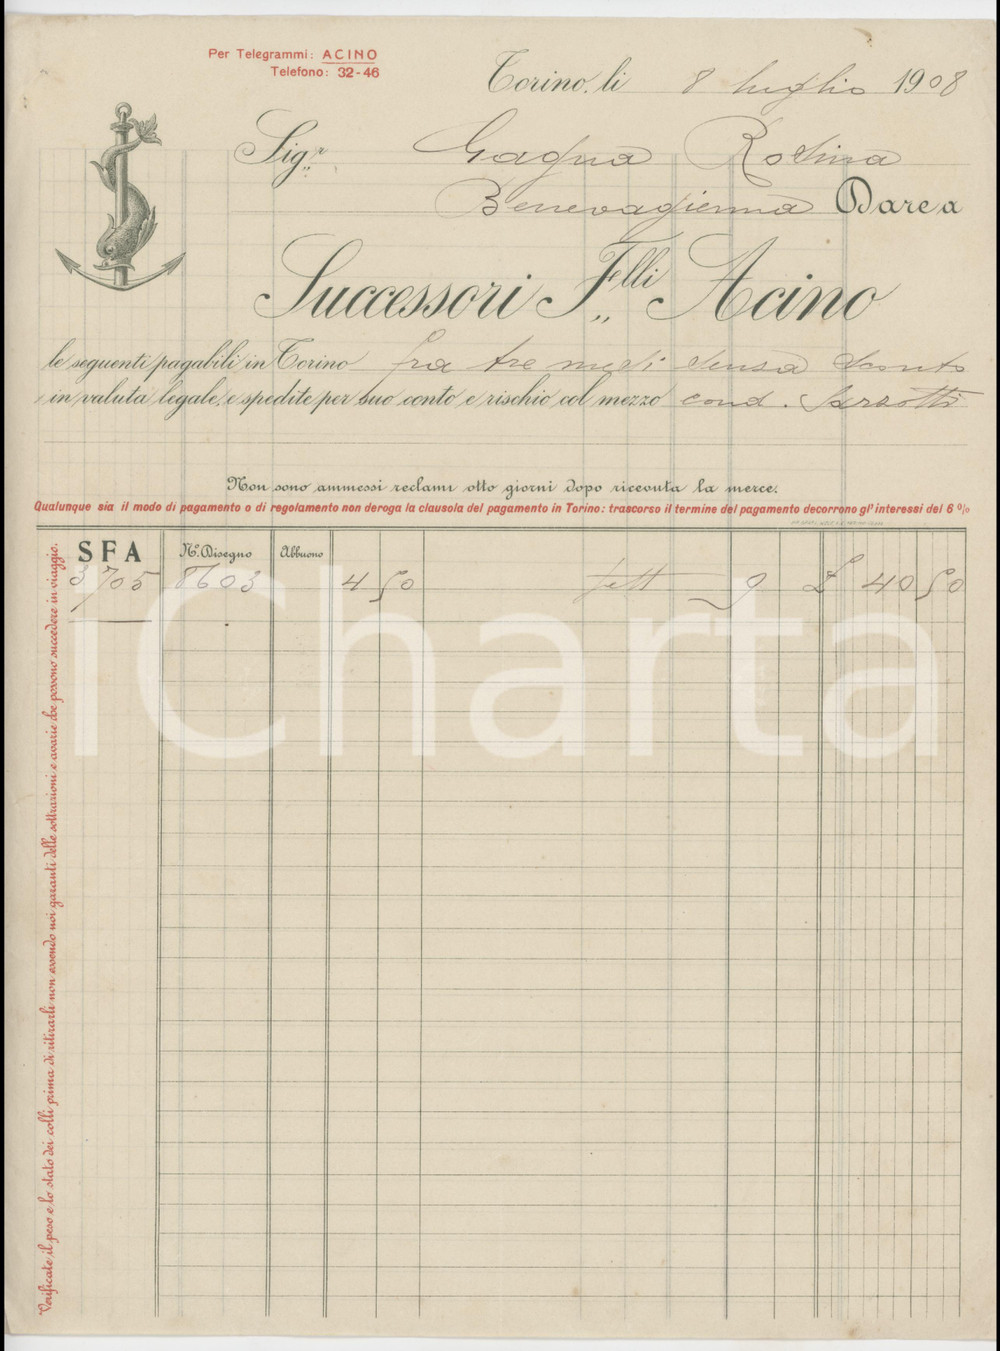 Per Telegrammi: ACINO
Telefono: 32-46
Torino, li 8 luglio 1908
Sig.r Gagna Rosina
Benevagienna Dare a
Successori F.lli Acino
le seguenti pagabili in Torino fra tre mesi senza sconto
in valuta legale, e spedite per suo conto e rischio col mezzo cond. Sarzotti
Non sono ammessi reclami otto giorni dopo ricevuta la merce.
Qualunque sia il modo di pagamento o di regolamento non deroga la clausola del pagamento in Torino: trascorso il termine del pagamento decorrono gl'interessi del 6%
SFA N.° Disegno Abbuono
3705 8603 4 50 9 £ 40 50
iCharta
Verificate il peso e lo stato dei colli prima di ritirarli non essendo noi garanti delle sottrazioni e avarie che possono succedere in viaggio.